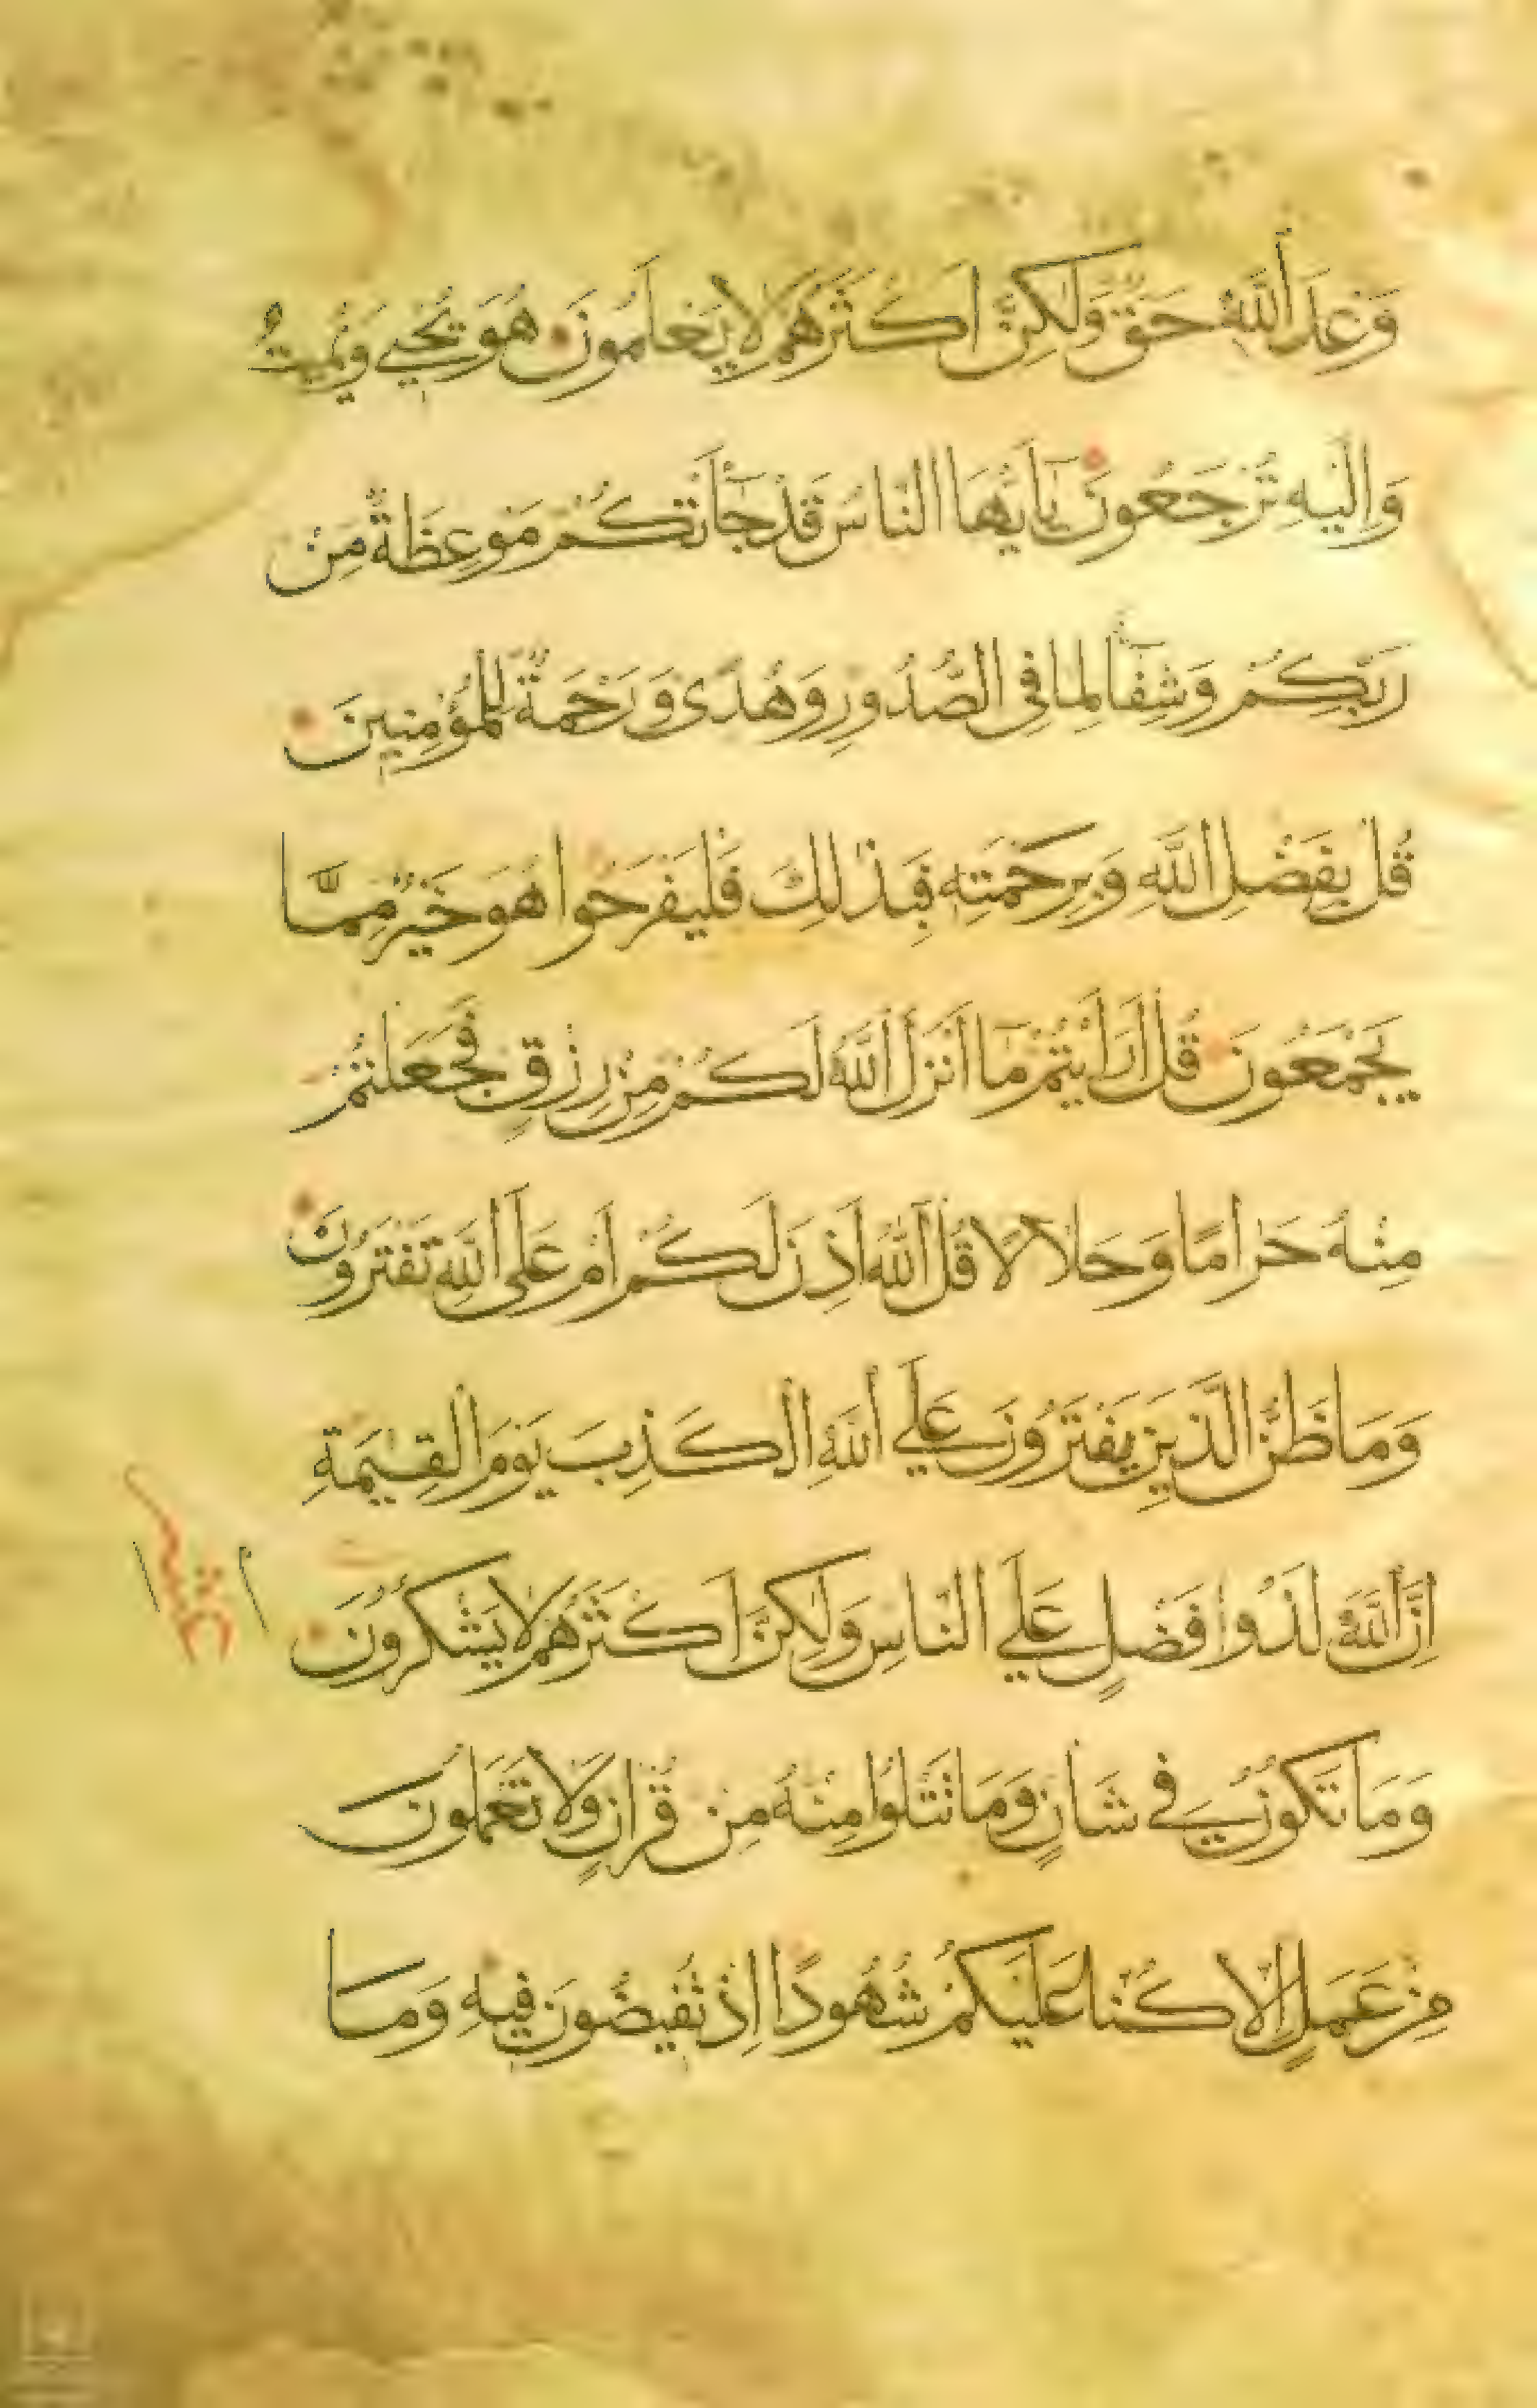 وَعْدَ اللّٰهِ حَقٌّ وَلٰكِنَّ اَكْثَرَهُمْ لَا يَعْلَمُونَ هُوَ يُحْيِي وَيُمِيتُ
وَاِلَيْهِ تُرْجَعُونَ يَآ اَيُّهَا النَّاسُ قَدْ جَآءَتْكُمْ مَوْعِظَةٌ مِنْ
رَبِّكُمْ وَشِفَآءٌ لِمَا فِي الصُّدُورِ وَهُدًى وَرَحْمَةٌ لِلْمُؤْمِنِينَ
قُلْ بِفَضْلِ اللّٰهِ وَبِرَحْمَتِهِ فَبِذٰلِكَ فَلْيَفْرَحُوا هُوَ خَيْرٌ مِمَّا
يَجْمَعُونَ قُلْ اَرَاَيْتُمْ مَآ اَنْزَلَ اللّٰهُ لَكُمْ مِنْ رِزْقٍ فَجَعَلْتُمْ
مِنْهُ حَرَامًا وَحَلَالًا قُلْ آللّٰهُ اَذِنَ لَكُمْ اَمْ عَلَى اللّٰهِ تَفْتَرُونَ
وَمَا ظَنُّ الَّذِينَ يَفْتَرُونَ عَلَي اللّٰهِ الْكَذِبَ يَوْمَ الْقِيٰمَةِ
اِنَّ اللّٰهَ لَذُوا فَضْلٍ عَلَي النَّاسِ وَلٰكِنَّ اَكْثَرَهُمْ لَا يَشْكُرُونَ
وَمَا تَكُونُ فِي شَأْنٍ وَمَا تَتْلُوا مِنْهُ مِنْ قُرْاٰنٍ وَلَا تَعْمَلُونَ
مِنْ عَمَلٍ اِلَّا كُنَّا عَلَيْكُمْ شُهُودًا اِذْ تُفِيضُونَ فِيهِ وَمَا